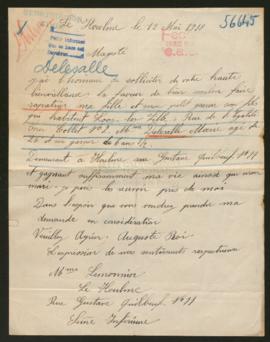 Le Houlme le 12 Mai 1911
56645
Majesté
Delesalle
j'ai l'honneur de solliciter de votre haute
bienveillance la faveur de bien vouloir faire
rapatrier ma fille et mon petit garçon son fils
qui habitent Loos lez Lille, Rue de l'Egalité
Cour Collet Nº 8. Mme Delesalle Marie age de
26 et un garçon de 6 an 1/2
Demeurant à Houlme rue Gustave Quilbeuf Nº 11
et gagnant suffisamment ma vie ainsi que mon
mari je puis les avoir près de moi
Dans l'espoir que vous voudrez prendre ma
demande en considération
Veuillez Agréer Auguste Roi
L'expression de mes sentiments respectueux
Mme Lemonnier
Le Houlme
Rue Gustave Quilbeuf Nº 11
Seine Inférieure